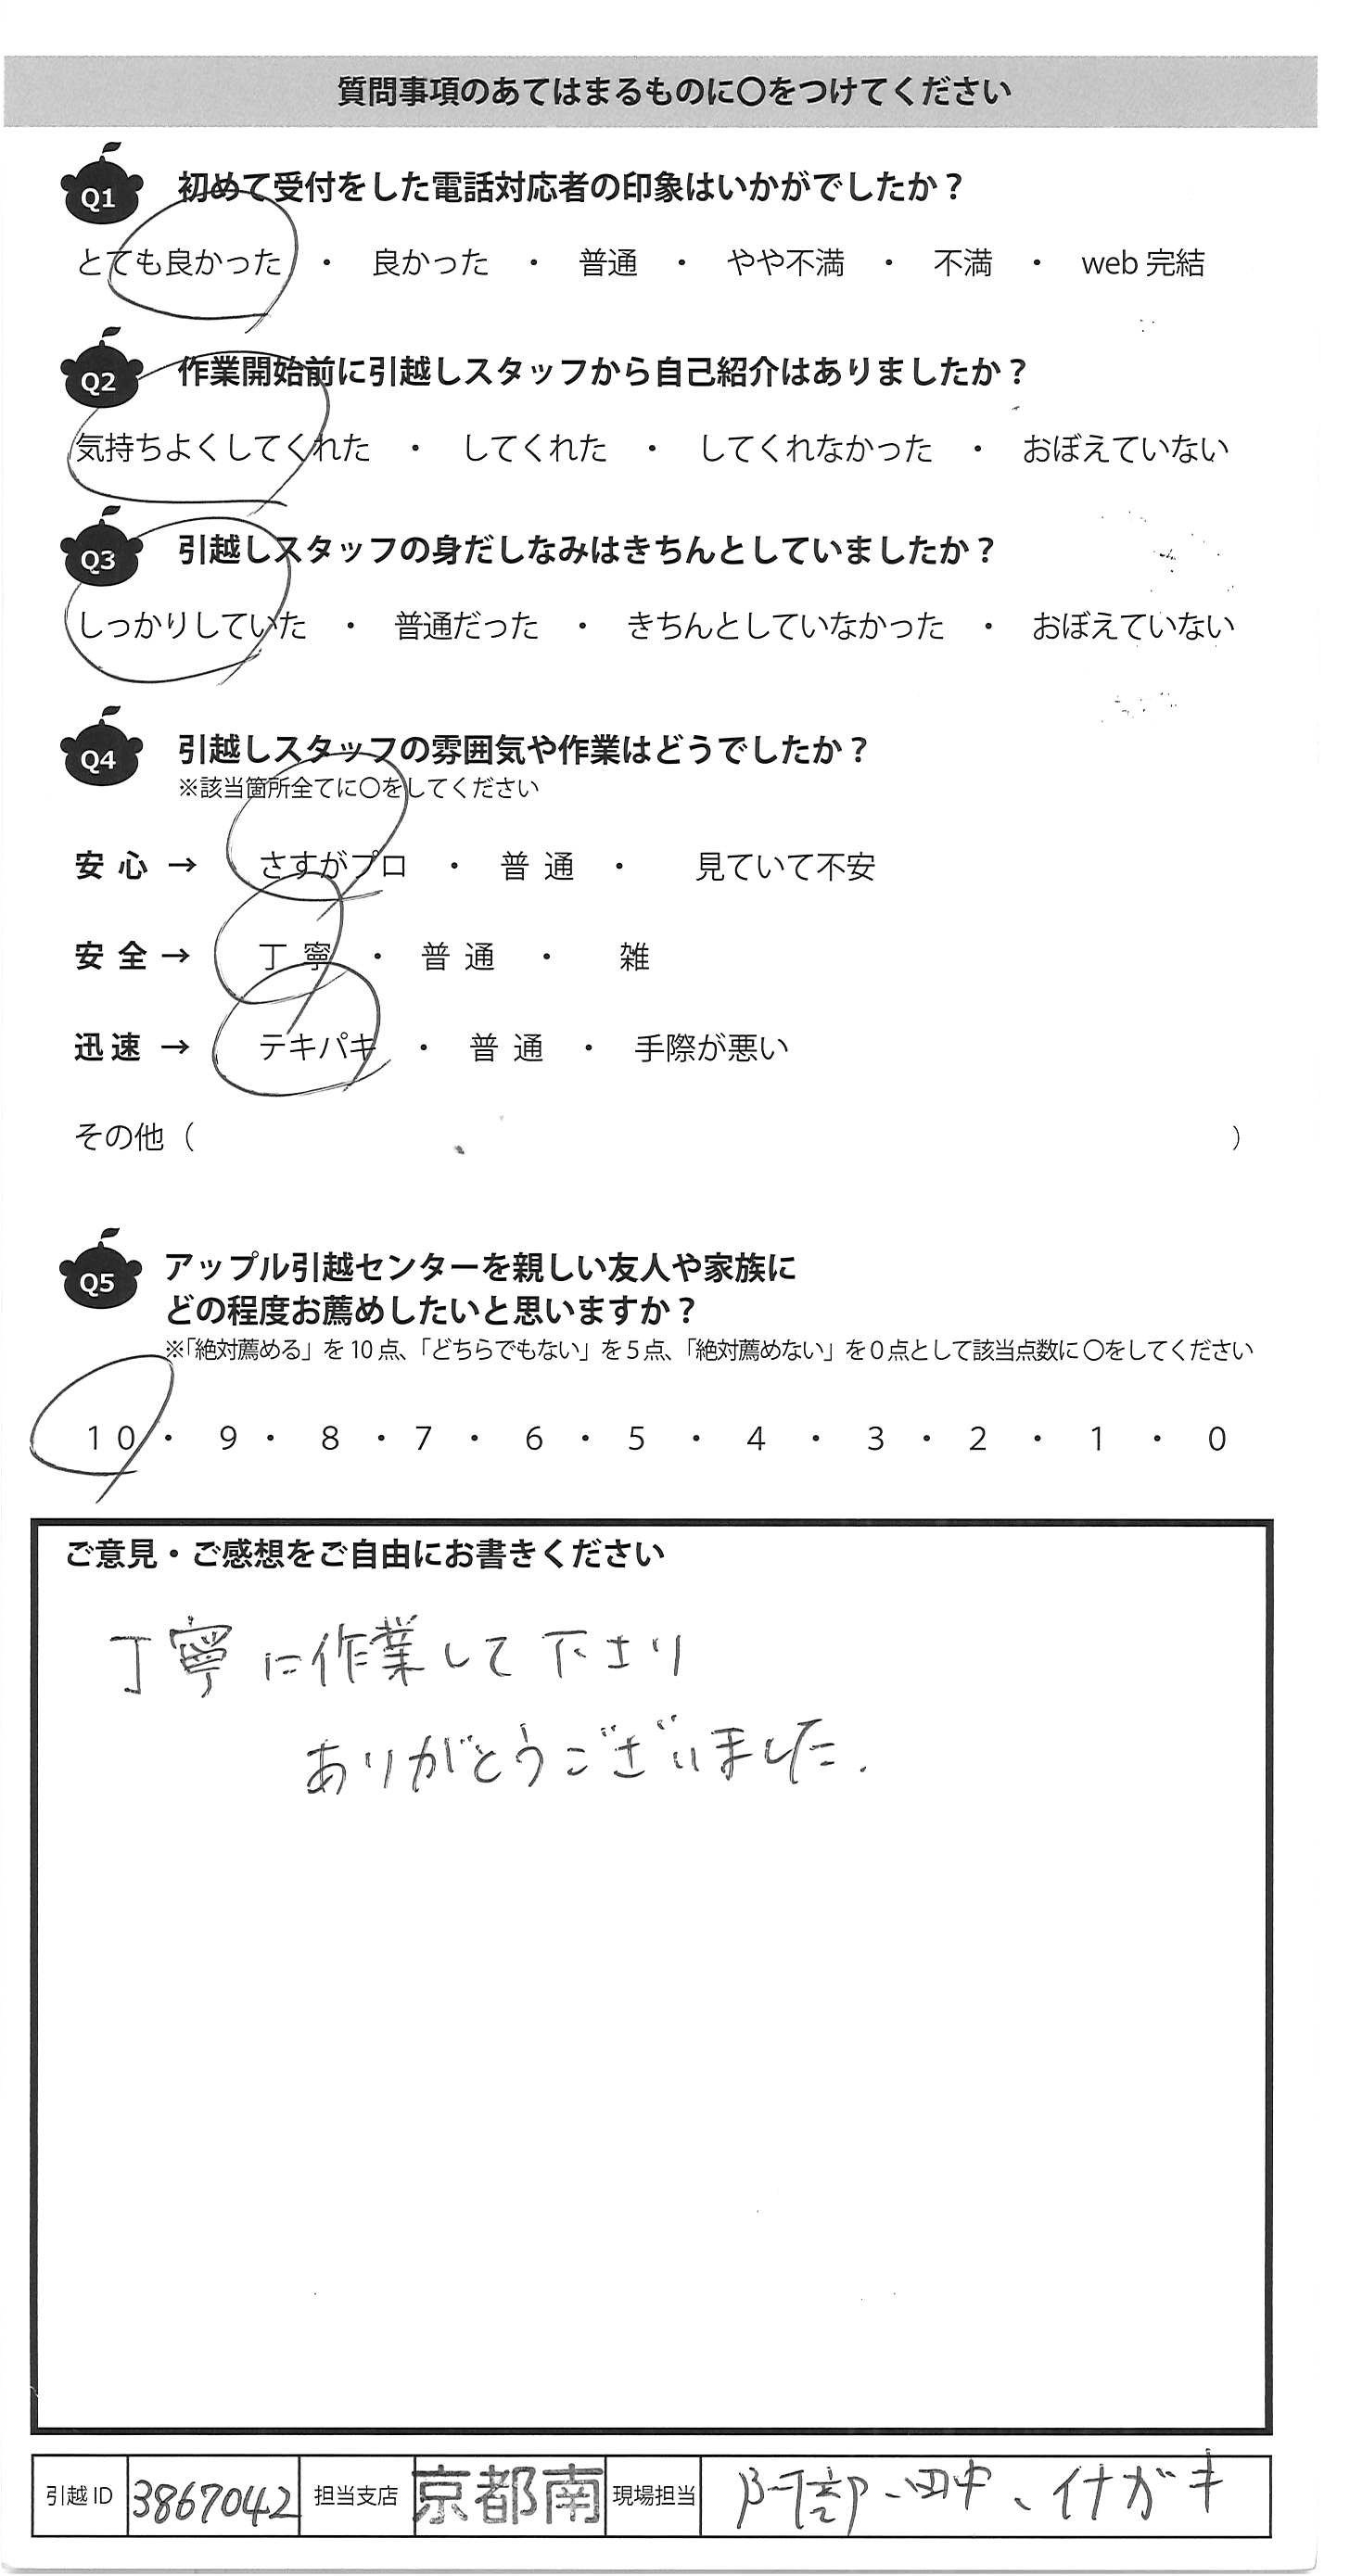 質問事項のあてはまるものに〇をつけてください
Q1 初めて受付をした電話対応者の印象はいかがでしたか？
とても良かった ・ 良かった ・ 普通 ・ やや不満 ・ 不満 ・ web 完結
Q2 作業開始前に引越しスタッフから自己紹介はありましたか？
気持ちよくしてくれた ・ してくれた ・ してくれなかった ・ おぼえていない
Q3 引越しスタッフの身だしなみはきちんとしていましたか？
しっかりしていた ・ 普通だった ・ きちんとしていなかった ・ おぼえていない
Q4 引越しスタッフの雰囲気や作業はどうでしたか？
※該当箇所全てに〇をしてください
安心 → さすがプロ ・ 普通 ・ 見ていて不安
安全 → 丁寧 ・ 普通 ・ 雑
迅速 → テキパキ ・ 普通 ・ 手際が悪い
その他（ ）
Q5 アップル引越センターを親しい友人や家族に
どの程度お薦めしたいと思いますか？
※「絶対薦める」を 10 点、「どちらでもない」を 5 点、「絶対薦めない」を 0 点として該当点数に 〇をしてください
10 ・ 9 ・ 8 ・ 7 ・ 6 ・ 5 ・ 4 ・ 3 ・ 2 ・ 1 ・ 0
ご意見・ご感想をご自由にお書きください
丁寧に作業して下さり
ありがとうございました.
引越 ID 3867042 担当支店 京都南 現場担当 阿部、田中、イナガキ